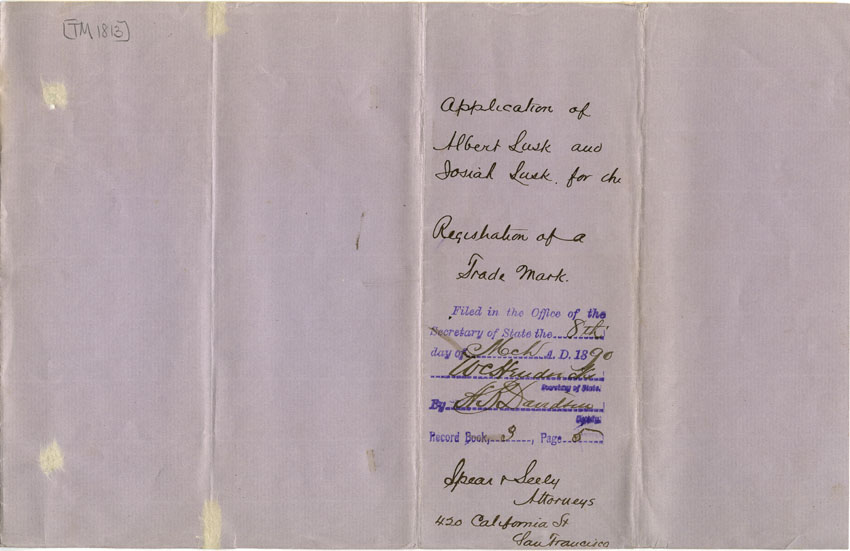 [TM 1813]
Application of
Albert Lusk and
Josiah Lusk. for the
Registration of a
Trade Mark.
Filed in the Office of the
Secretary of State the 8th
day of Mch A. D. 1890
W C Hendricks
Secretary of State.
By Davidson
Deputy.
Record Book, 3, Page 5
Spear & Seely
Attorneys
420 California St
San Francisco